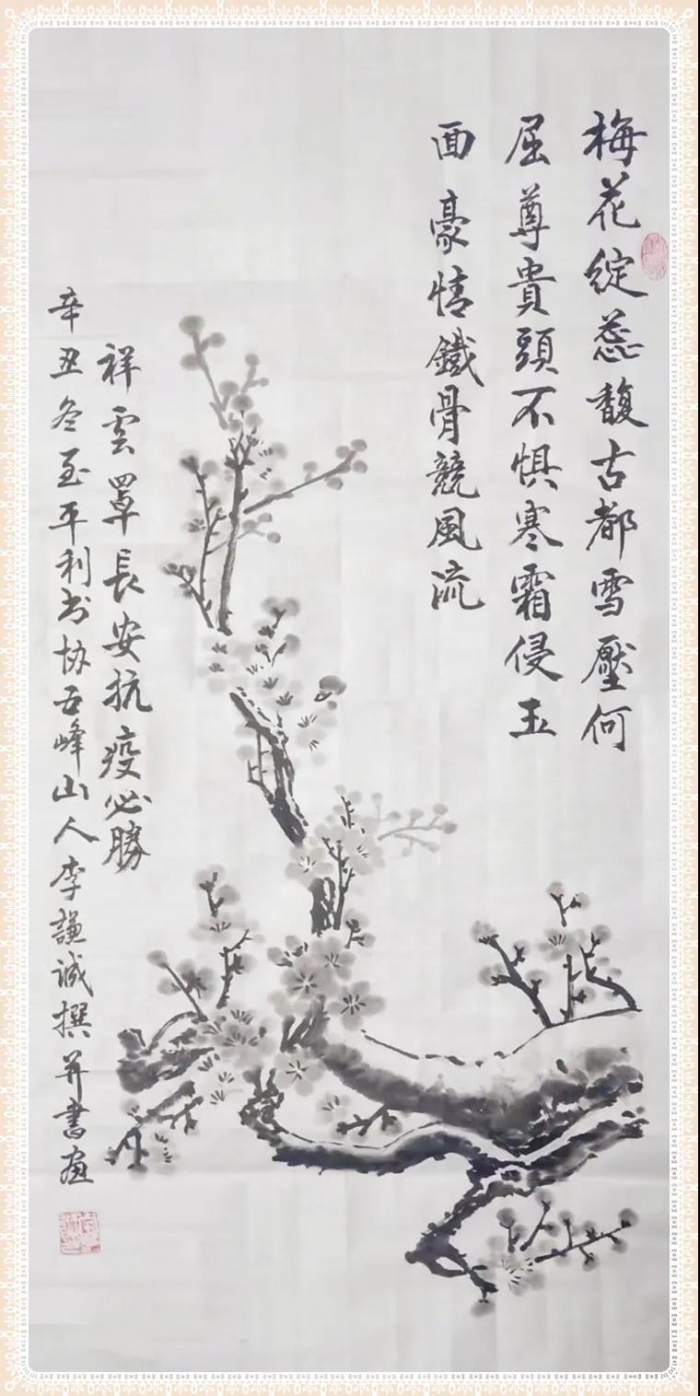 梅花綻蕊馥古都雪壓何
屈尊貴頭不惧寒霜侵玉
面豪情鐵骨競風流
祥雲罩長安抗疫必勝
辛丑冬至平利书协五峰山人李謙诚撰并書画